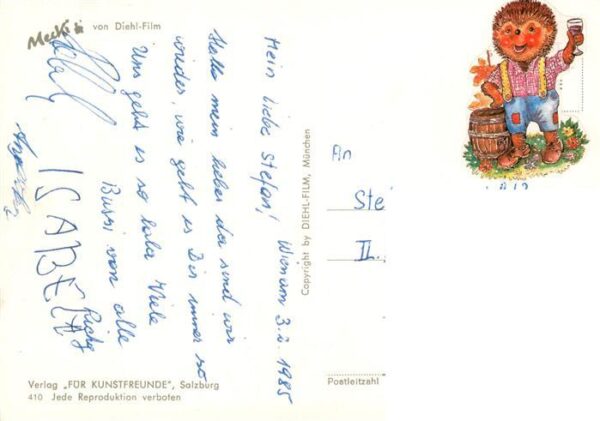 Mecki
von Diehl-Film
Mein liebe Stefan!
Wien am 3.2.1985
Hallo mein lieber da sind wir
wieder, wie geht es Dir immer so
Uns geht es so lala Viele
Bussi von alle
ISABELLA
Richy
Verlag „FÜR KUNSTFREUNDE", Salzburg
410 Jede Reproduktion verboten
Copyright by DIEHL-FILM, München
An
Ste
II.
Postleitzahl